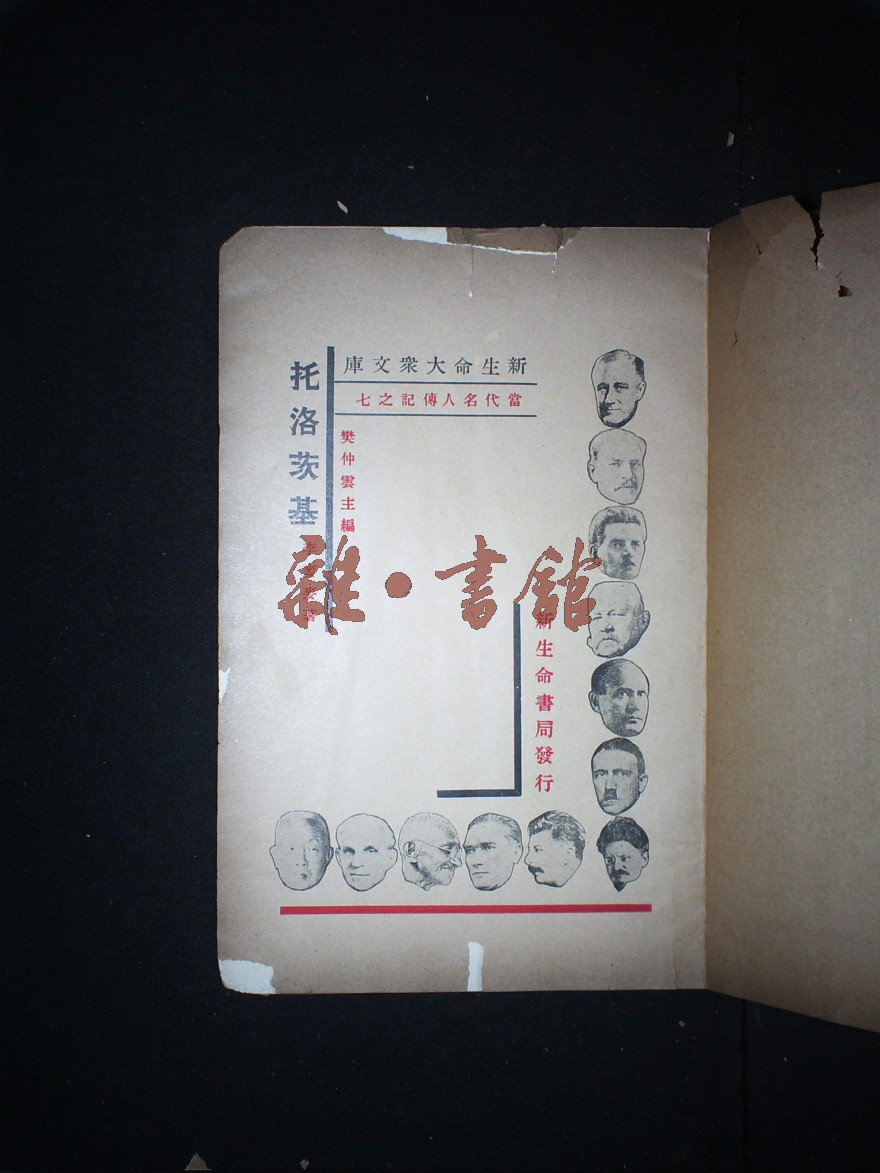 新生命大衆文庫
當代名人傳記之七
樊仲雲主編
托洛茨基
新生命書局發行
雜·書館